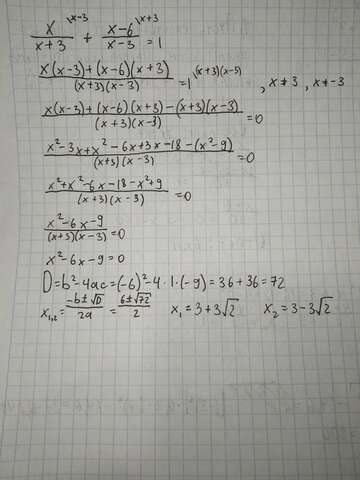 x/(x+3) \x-3 + (x-6)/(x-3) \x+3 = 1
(x(x-3)+(x-6)(x+3))/((x+3)(x-3)) = 1 \(x+3)(x-5) , x≠3 , x≠-3
(x(x-3)+(x-6)(x+3)-(x+3)(x-3))/((x+3)(x-3)) = 0
(x²-3x+x²-6x+3x-18-(x²-9))/((x+3)(x-3)) = 0
(x²+x²-6x-18-x²+9)/((x+3)(x-3)) = 0
(x²-6x-9)/((x+3)(x-3)) = 0
x²-6x-9=0
D=b²-4ac=(-6)²-4·1·(-9)=36+36=72
x₁,₂=(-b±√D)/2a=(6±√72)/2 x₁=3+3√2 x₂=3-3√2